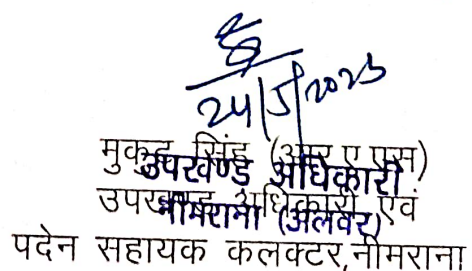 24/5/2023
मुकुट सिंह (आर ए एस)
उपखण्ड अधिकारी
उपखण्ड अधिकारी एवं
नीमराना (अलवर)
पदेन सहायक कलक्टर,नीमराना